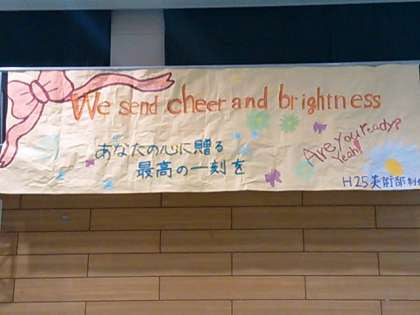 We send cheer and brightness
あなたの心に贈る
最高の一刻を
Are you ready?
Yeah!!
H25美術部